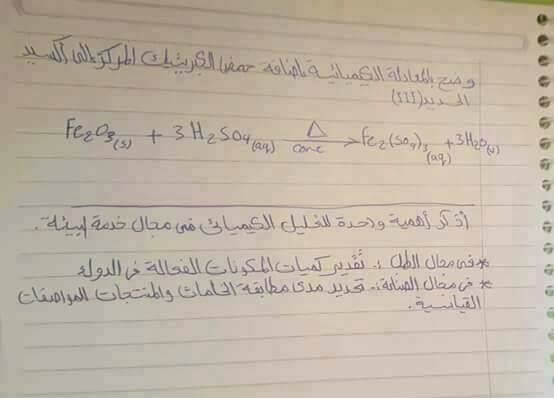 وضح بالمعادلة الكيميائية إضافة حمض الكبريتيك المركز إلى أكسيد
الحديد (III)
Fe2O3(s) + 3H2SO4(aq) Δ conc → Fe2(SO4)3(aq) + 3H2O(v)
أذكر أهمية واحدة للتحليل الكيميائى فى مجال خدمة البيئة.
* فى مجال الطب :. تقدير كميات المكونات الفعالة فى الدواء
* فى مجال الصناعة :. تحديد مدى مطابقة الخامات والمنتجات المواصفات
القياسية.